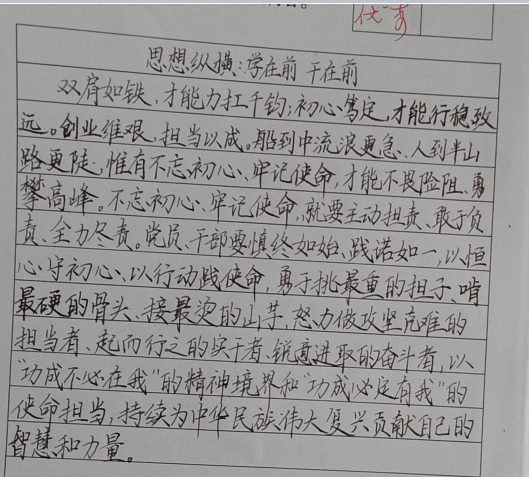 思想纵横：学在前 干在前
双肩如铁，才能力扛千钧；初心笃定，才能行稳致
远。创业维艰，担当以成。船到中流浪更急、人到半山
路更陡，惟有不忘初心、牢记使命，才能不畏险阻、勇
攀高峰。不忘初心、牢记使命，就要主动担责、敢于负
责、全力尽责。党员、干部要慎终如始、践诺如一，以恒
心守初心、以行动践使命，勇于挑最重的担子、啃
最硬的骨头、接最烫的山芋，努力做攻坚克难的
担当者、起而行之的实干者、锐意进取的奋斗者，以
“功成不必在我”的精神境界和“功成必定有我”的
使命担当，持续为中华民族伟大复兴贡献自己的
智慧和力量。